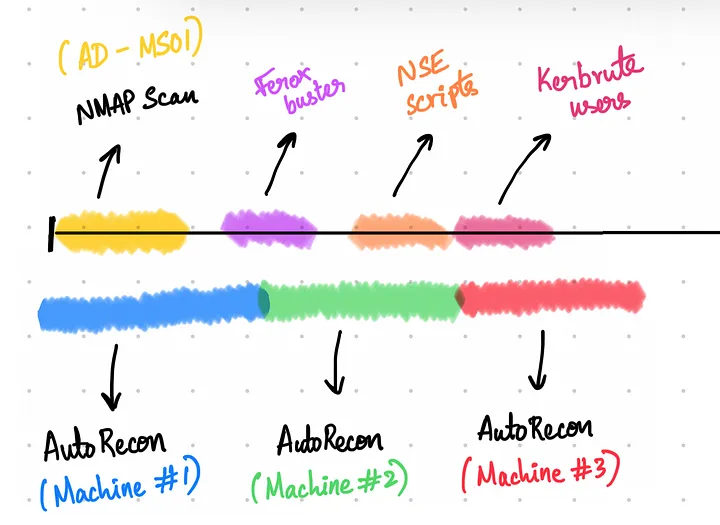 (AD - MS01)
NMAP Scan
Ferox
buster
NSE
scripts
Kerbrute
users
AutoRecon
(Machine #1)
AutoRecon
(Machine #2)
AutoRecon
(Machine #3)